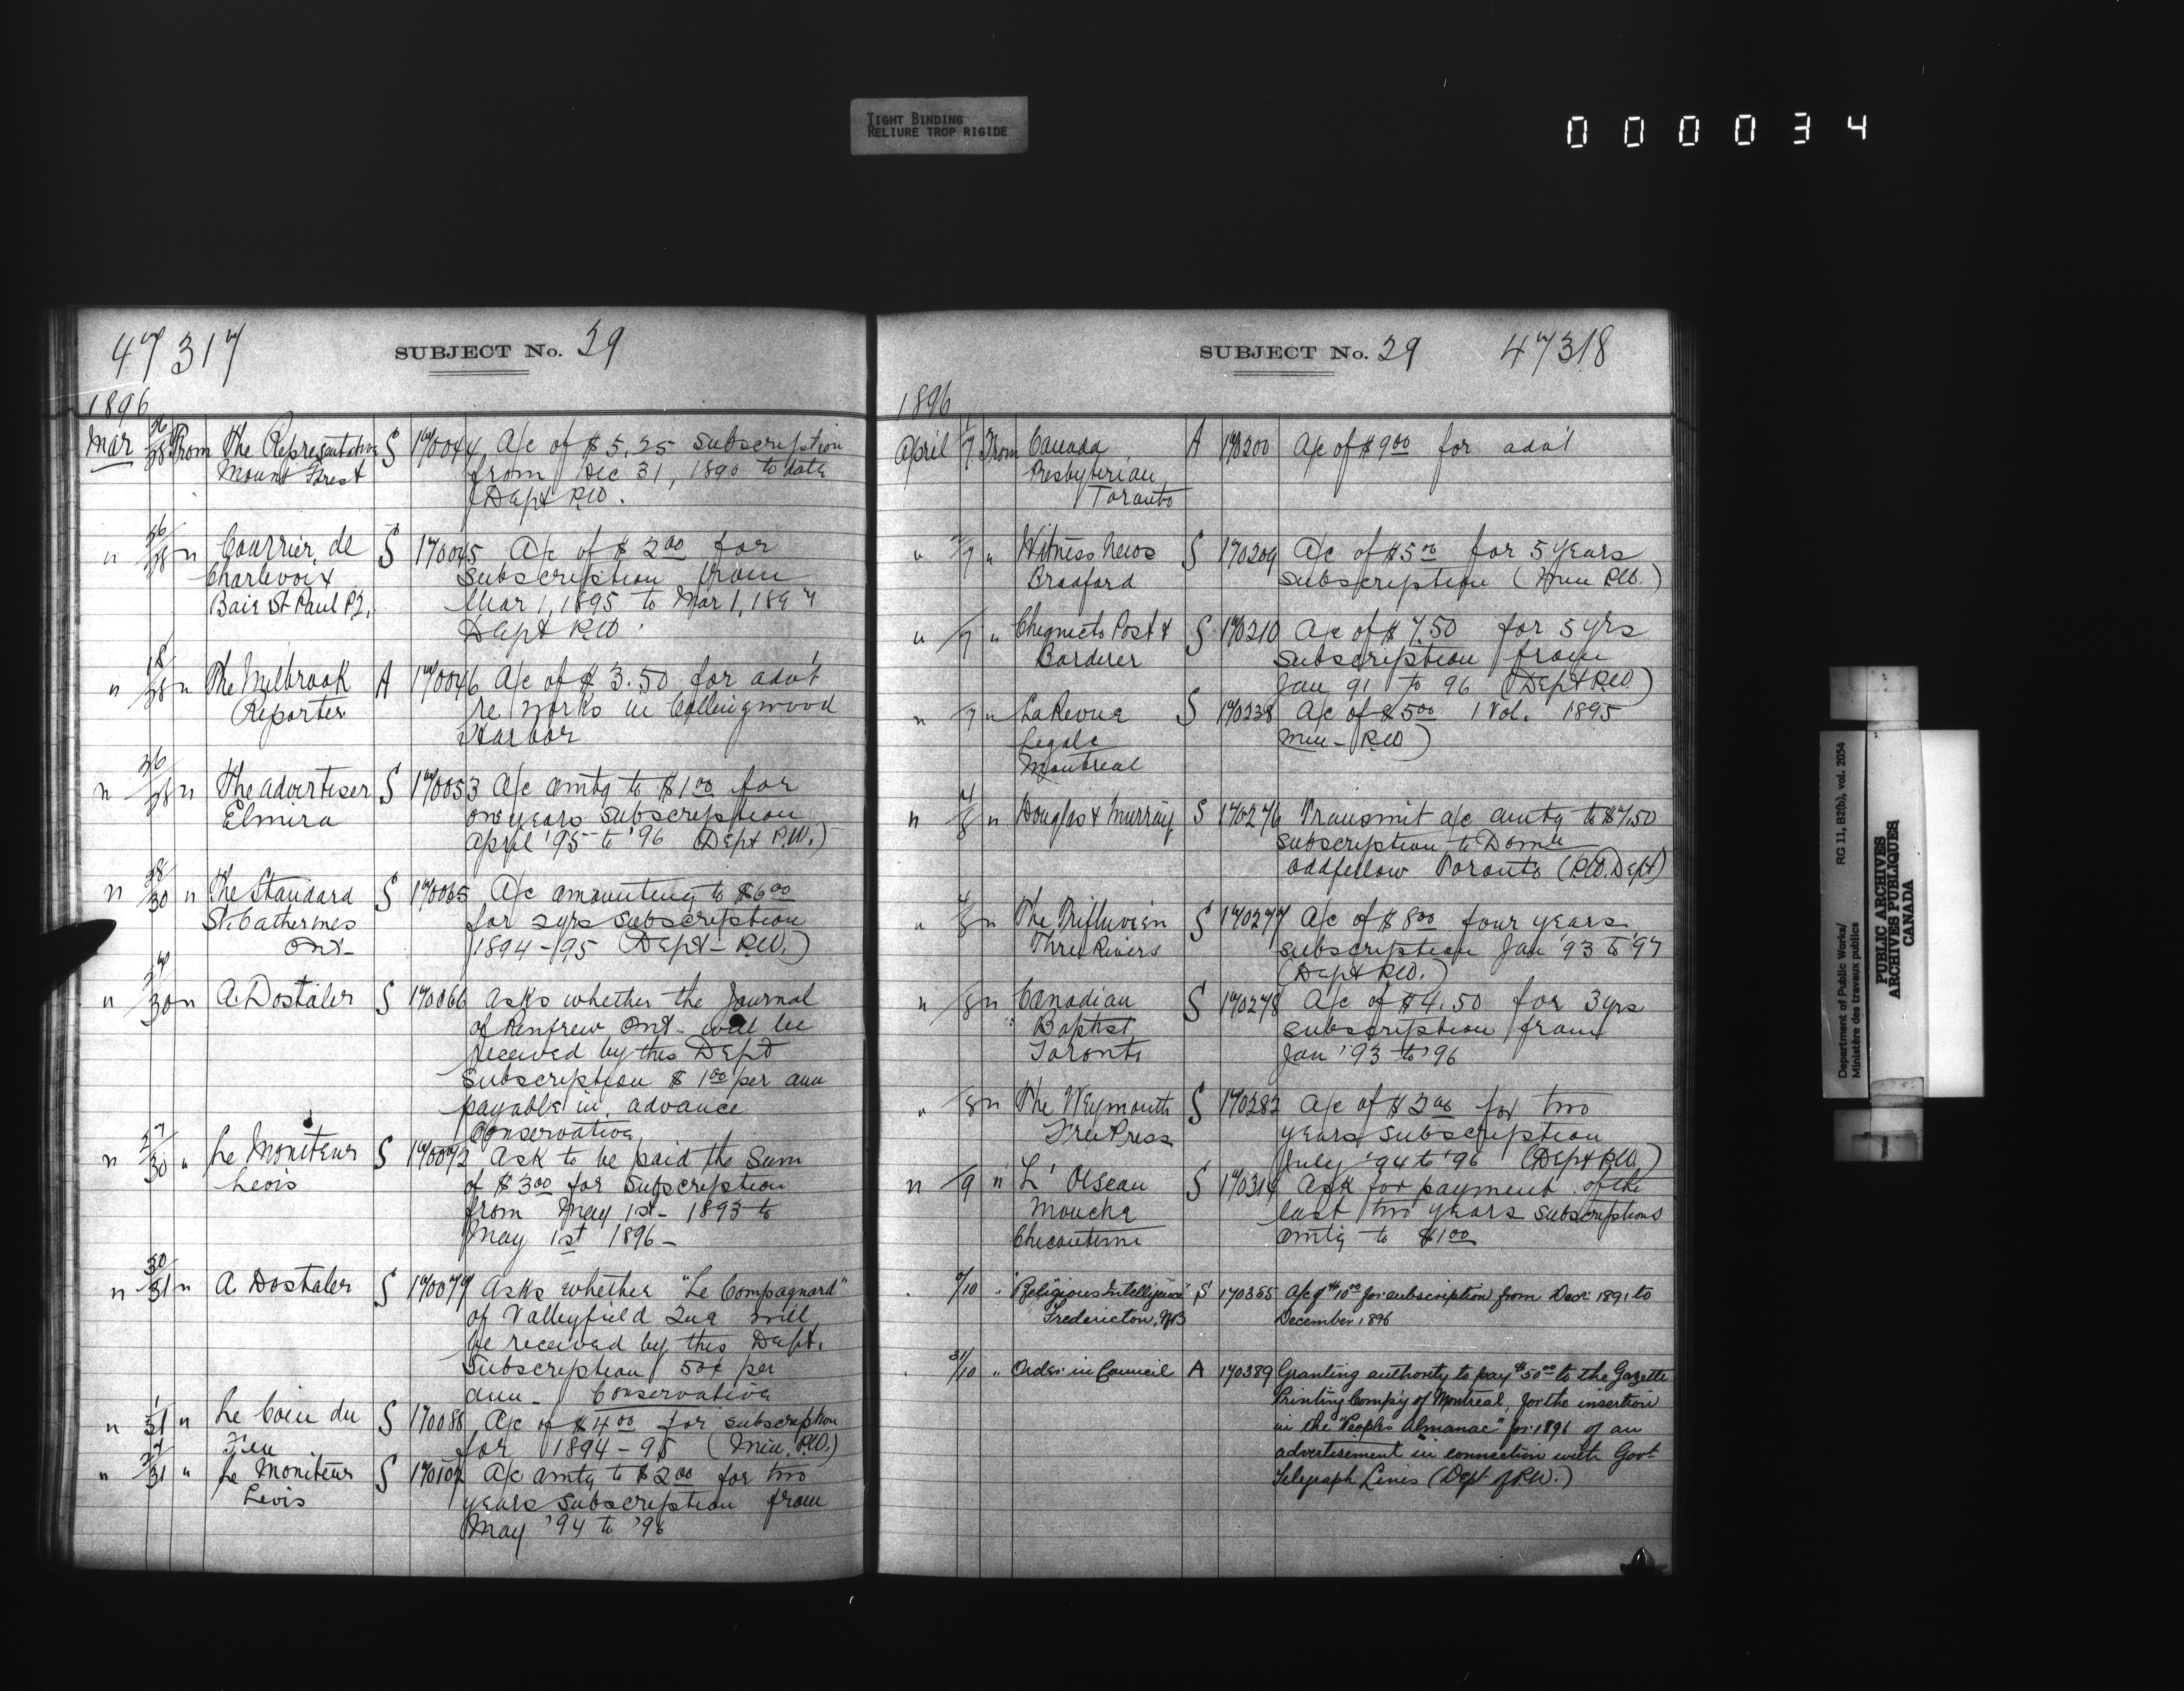 TIGHT BINDING
RELIURE TROP RIGIDE
000034
47317
SUBJECT No. 29
1896
Mar 26/28 From The Representative S 170044 A/c of $5.25 subscription
Mount Forest from Dec 31, 1890 to date
(Dept P.W.
" 26/28 " Courrier de S 170045 A/c of $2.00 for
Charlevoix subscription from
Baie St Paul P.Q. Mar 1, 1895 to Mar 1, 1897
Dept P.W.
" 18/28 " The Milbrook A 170046 A/c of $3.50 for advt
Reporter re works in Collingwood
Harbor
" 26/28 " The advertiser S 170053 A/c amtg to $1.00 for
Elmira one years subscription
April '95 to '96 (Dept P.W.)
" 28/30 " The Standard S 170065 A/c amounting to $6.00
St. Catherines for 2 yrs subscription
Ont- 1894-95 (Dept- P.W.)
" 30 " A. Dostaler S 170066 Asks whether the Journal
of Renfrew Ont- will be
received by this Dept
subscription $1.00 per ann
payable in advance
Conservative
" 27/30 " Le Moniteur S 170072 Ask to be paid the sum
Levis of $3.00 for subscription
from May 1st- 1893 to
May 1st 1896-
" 30/31 " A. Dostaler S 170079 Asks whether "Le Compagnard"
of Valleyfield Que will
be received by this Dept.
Subscription 50¢ per
ann- Conservative
" 1/31 " Le Coin du S 170088 A/c of $4.00 for subscription
Feu for 1894-95 (Min. P.W.)
" 31 " Le Moniteur S 170107 A/c amtg to $2.00 for two
Levis years subscription from
May '94 to '96
SUBJECT No. 29
47318
1896
April 1/7 From Canada A 170200 A/c of $9.00 for advt
Presbyterian
Toronto
" 2/7 " Witness News S 170209 A/c of $5.00 for 5 years
Bradford subscription (Min P.W.)
" /7 " Chignecto Post & S 170210 A/c of $7.50 for 5 yrs
Borderer subscription from
Jan 91 to 96 (Dept P.W.)
" /7 " La Revue S 170238 A/c of $5.00 1 Vol. 1895
Legale Min- P.W)
Montreal
" 4/8 " Douglas & Murray S 170276 Transmit a/c amtg to $7.50
subscription to Domn
Oddfellow Toronto (P.W. Dept)
" 4/8 " The Trifluvien S 170277 A/c of $8.00 four years
Three Rivers subscription Jan '93 to '97
(Dept P.W.)
" /8 " Canadian S 170278 A/c of $4.50 for 3 yrs
Baptist subscription from
Toronto Jan '93 to '96
" /8 " The Weymouth S 170282 A/c of $2.00 for two
Free Press years subscription
July '94 to '96 (Dept P.W.)
" /9 " L' Oiseau S 170314 Ask for payment of the
Mouche last two years subscriptions
Chicoutimi amtg to $1.00
/10 " "Religious Intelligencer" S 170355 A/c of $10.00 for subscription from Decr 1891 to
Fredericton, N.B December 1896
31/10 " Order in Council A 170389 Granting authority to pay $50.00 to the Gazette
Printing Comp'y of Montreal, for the insertion
in the "Peoples Almanac" for 1896 of an
advertisement in connection with Govt
Telegraph Lines (Dept of P.W.)
Department of Public Works/ RG 11, B2(b), vol. 2054
Ministère des travaux publics
PUBLIC ARCHIVES
ARCHIVES PUBLIQUES
CANADA